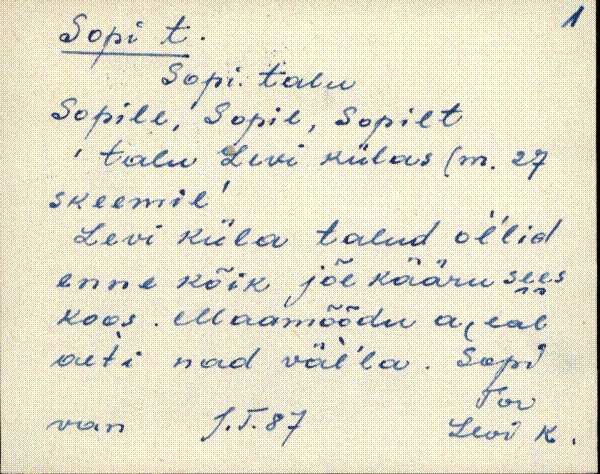 1
Sopi t.
Sopi talu
Sopile, Sopil, Sopilt
' talu Levi külas (m. 27
skeemil'
Levi küla talud ol'lid
enne kõik jõe kääru sees
koos. Maamõõdu a, eal
aeti nad väl'la. Sopi
Tor
van J.T.87 Levi k.